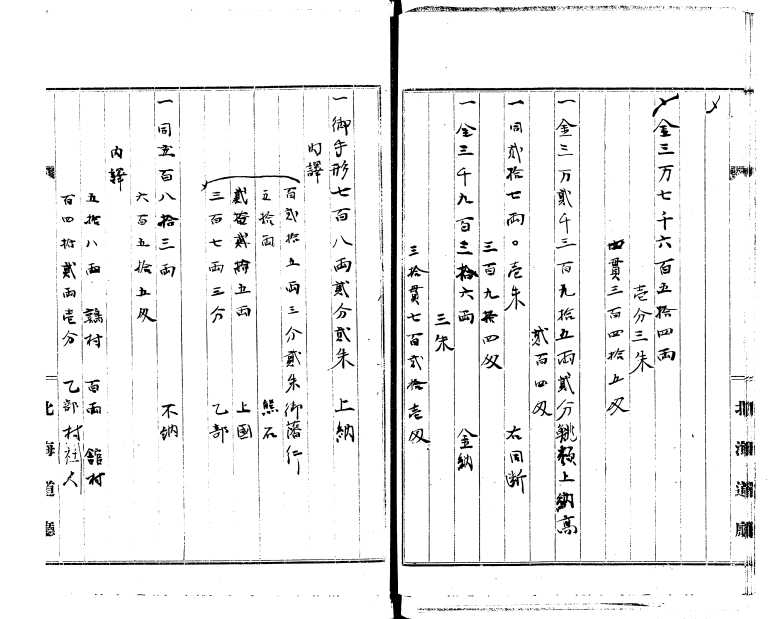 一金三万七千六百五拾四両
壱分三朱
四貫三百四拾五匁
一金三万貳千三百九拾五両貳分 銚類上納高
貳百四匁
一同貳拾七両〇壱朱 右同断
三百九拾四匁
一金三千九百三拾六両 金納
三朱
三拾貫七百貳拾壱匁
北海道廳
一御手形七百八両貳分貳朱 上納
内譯
百貳拾五両三分貳朱 御藩仁
五拾両 熊石
貳百貳拾五両 上國
三百七両三分 乙部
一同五百八拾三両 不納
六百五拾五匁
内譯
五拾八両 鶉村 百両 館村
百四拾貳両壱分 乙部村社人
北海道廳